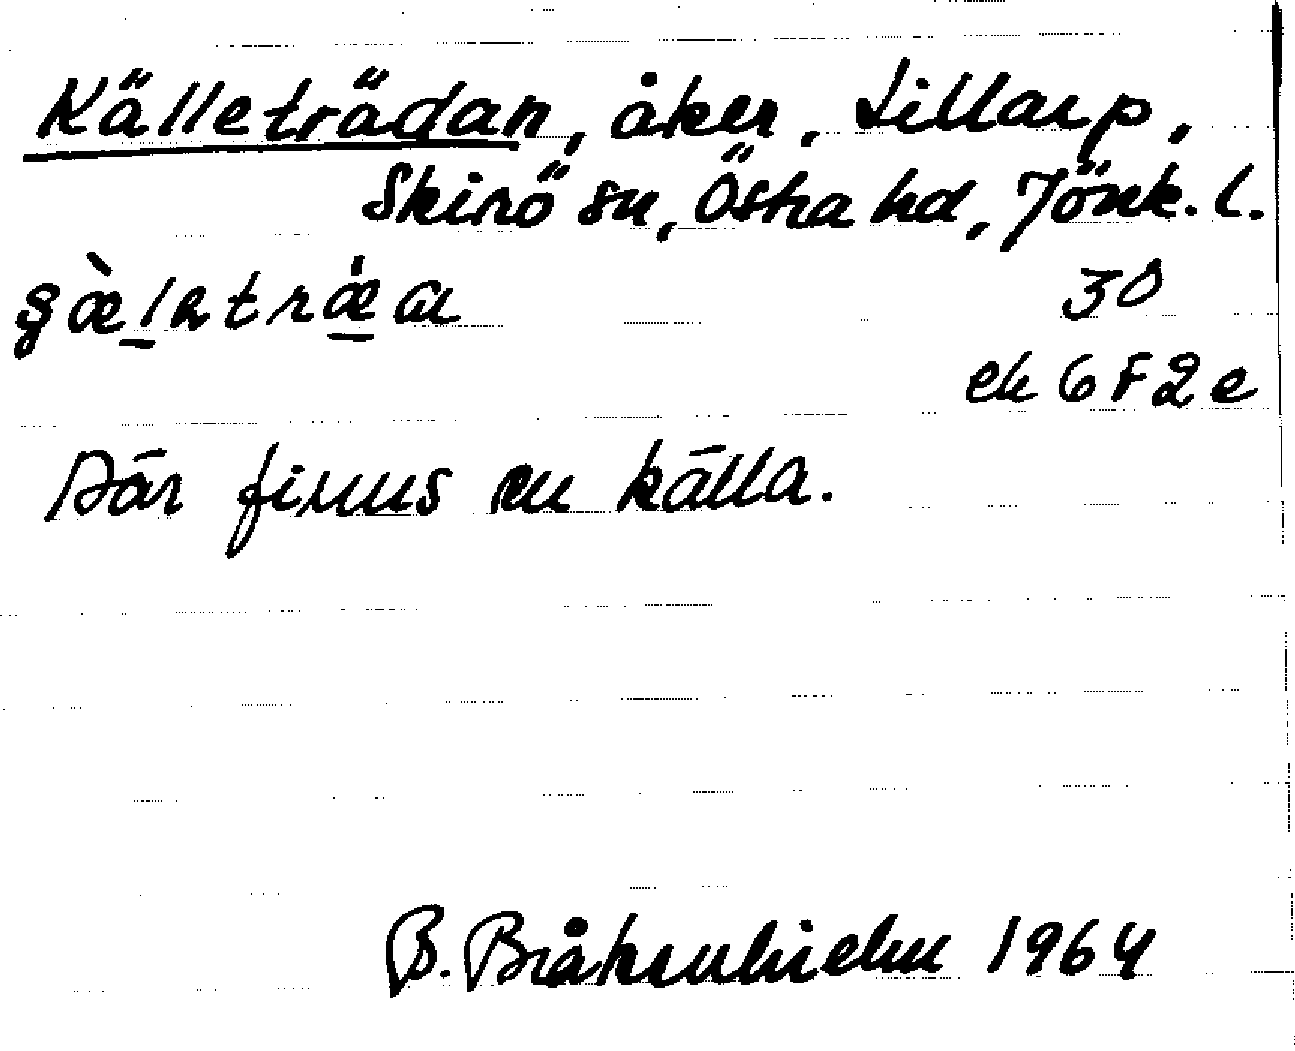 Källeträdan, åker, Lillarp,
Skirö sn, Östra hd, Jönk. l.
30
ek 6F2e
Där finns en källa.
B. Bråkenhielm 1964